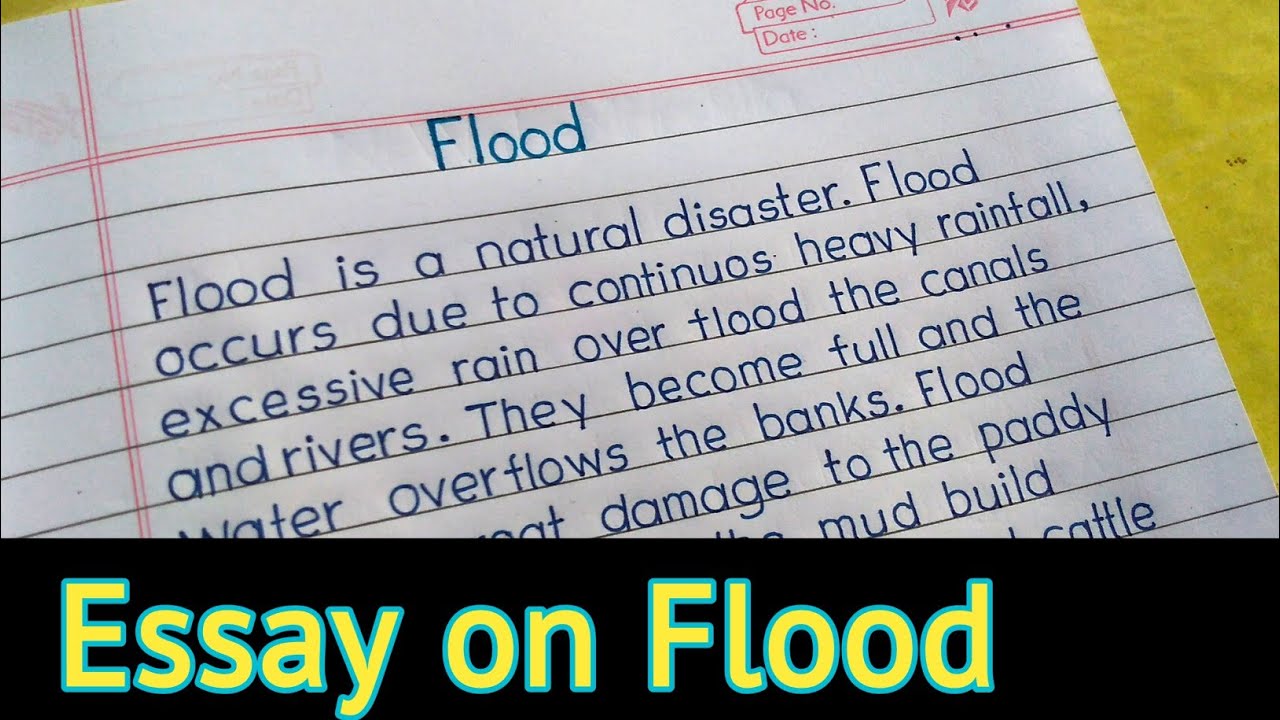 Page No.
Date:
Flood
Flood is a natural disaster. Flood
occurs due to continuos heavy rainfall,
excessive rain over flood the canals
and rivers. They become full and the
water overflows the banks. Flood
damage to the paddy
mud build
cattle
Essay on Flood